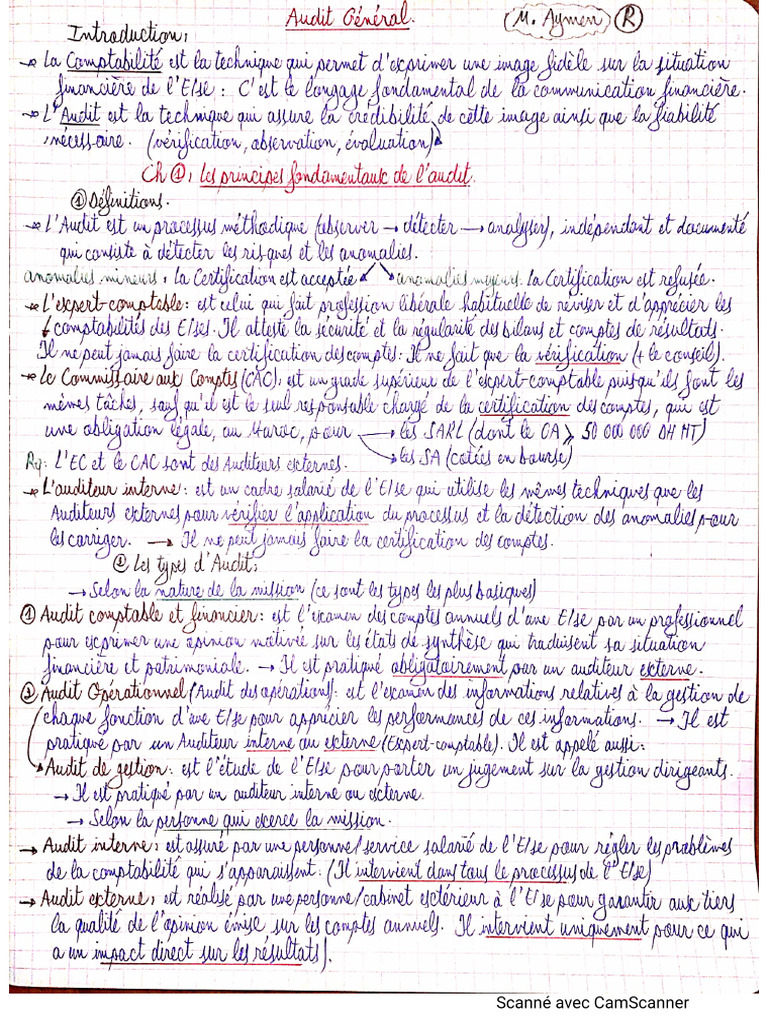 Audit Général.
M. Aymen R
Introduction:
→ La Comptabilité est la technique qui permet d'exprimer une image fidèle sur la situation
financière de l'E/se : C'est le langage fondamental de la communication financière.
→ L'Audit est la technique qui assure la crédibilité de cette image ainsi que la fiabilité
nécessaire. (vérification, observation, évaluation)
Ch ①: Les principes fondamentaux de l'audit.
① Définitions.
→ L'Audit est un processus méthodique (observer → détecter → analyser), indépendant et documenté
qui consiste à détecter les risques et les anomalies.
anomalies mineurs: la Certification est acceptée anomalies majeurs. la Certification est refusée.
→ L'expert-comptable: est celui qui fait profession libérale habituelle de réviser et d'apprécier les
comptabilités des E/ses. Il atteste la sécurité et la régularité des bilans et comptes de résultats.
Il ne peut jamais faire la certification des comptes: Il ne fait que la vérification (+ le conseil).
→ Le Commissaire aux Comptes (CAC): est un grade supérieur de l'expert-comptable puisqu'ils font les
mêmes tâches, sauf qu'il est le seul responsable chargé de la certification des comptes, qui est
une obligation légale, au Maroc, pour → les SARL (dont le CA ≥ 50 000 000 DH HT)
→ les SA (cotiés en bourse)
Rq: L'EC et le CAC sont des Auditeurs externes.
→ L'auditeur interne: est un cadre salarié de l'E/se qui utilise les mêmes techniques que les
Auditeurs externes pour vérifier l'application du processus et la détection des anomalies pour
les corriger. → Il ne peut jamais faire la certification des comptes.
② Les types d'Audit:
→ Selon la nature de la mission (ce sont les types les plus basiques)
① Audit comptable et financier: est l'examen des comptes annuels d'une E/se par un professionnel
pour exprimer une opinion motivée sur les états de synthèse qui traduisent sa situation
financière et patrimoniale. → Il est pratiqué obligatoirement par un auditeur externe.
② Audit Opérationnel (Audit des opérations): est l'examen des informations relatives à la gestion de
chaque fonction d'une E/se pour apprécier les performances de ces informations. → Il est
pratiqué par un Auditeur interne ou externe (Expert-comptable). Il est appelé aussi:
Audit de gestion: est l'étude de l'E/se pour porter un jugement sur la gestion dirigeants.
→ Il est pratiqué par un auditeur interne ou externe.
→ Selon la personne qui exerce la mission.
→ Audit interne: est assuré par une personne/service salarié de l'E/se pour régler les problèmes
de la comptabilité qui s'apparaissent. (Il intervient dans tous le processus de l'E/se)
→ Audit externe: est réalisé par une personne/cabinet extérieur à l'E/se pour garantir aux tiers
la qualité de l'opinion émise sur les comptes annuels. Il intervient uniquement pour ce qui
a un impact direct sur les résultats).
Scanné avec CamScanner